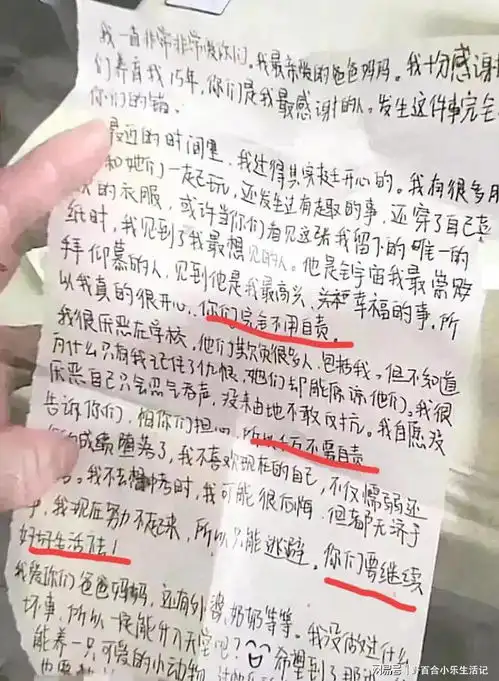 我一直非常非常爱你们。我最亲爱的爸爸妈妈。我十分感谢
们养育我15年,你们是我最感谢的人。发生这件事完全
你们的错。
最近的时间里,我过得其实挺开心的。我有很多
和她们一起玩,还发生过有趣的事,还穿了自己喜
的衣服,或许当你们看见这张我留下的唯一的
纸时,我见到了我最想见的人。他是全宇宙我最崇
拜仰慕的人,见到他是我最高兴、幸福的事,所
以我真的很开心,你们完全不用自责。
我很厌恶在学校,他们欺负很多人,包括我。但不知道
为什么只有我记住了仇恨,她们却能原谅他们。我很
厌恶自己只会忍气吞声,没来由地不敢反抗。我自愿没
告诉你们,怕你们担心,所以千万不需自责
的成绩堕落了,我不喜欢现在的自己,不仅懦弱还
。我不去中考时,我可能很后悔,但都无济于
事,我现在努力不起来,所以只能逃避。你们要继续
好好生活下去!
我爱你们爸爸妈妈,还有外婆奶奶等等。我没做过什么
坏事,所以一定能升入天堂吧?希望到了那
能养一只可爱的小动物
搜狐号@百合小乐生活记